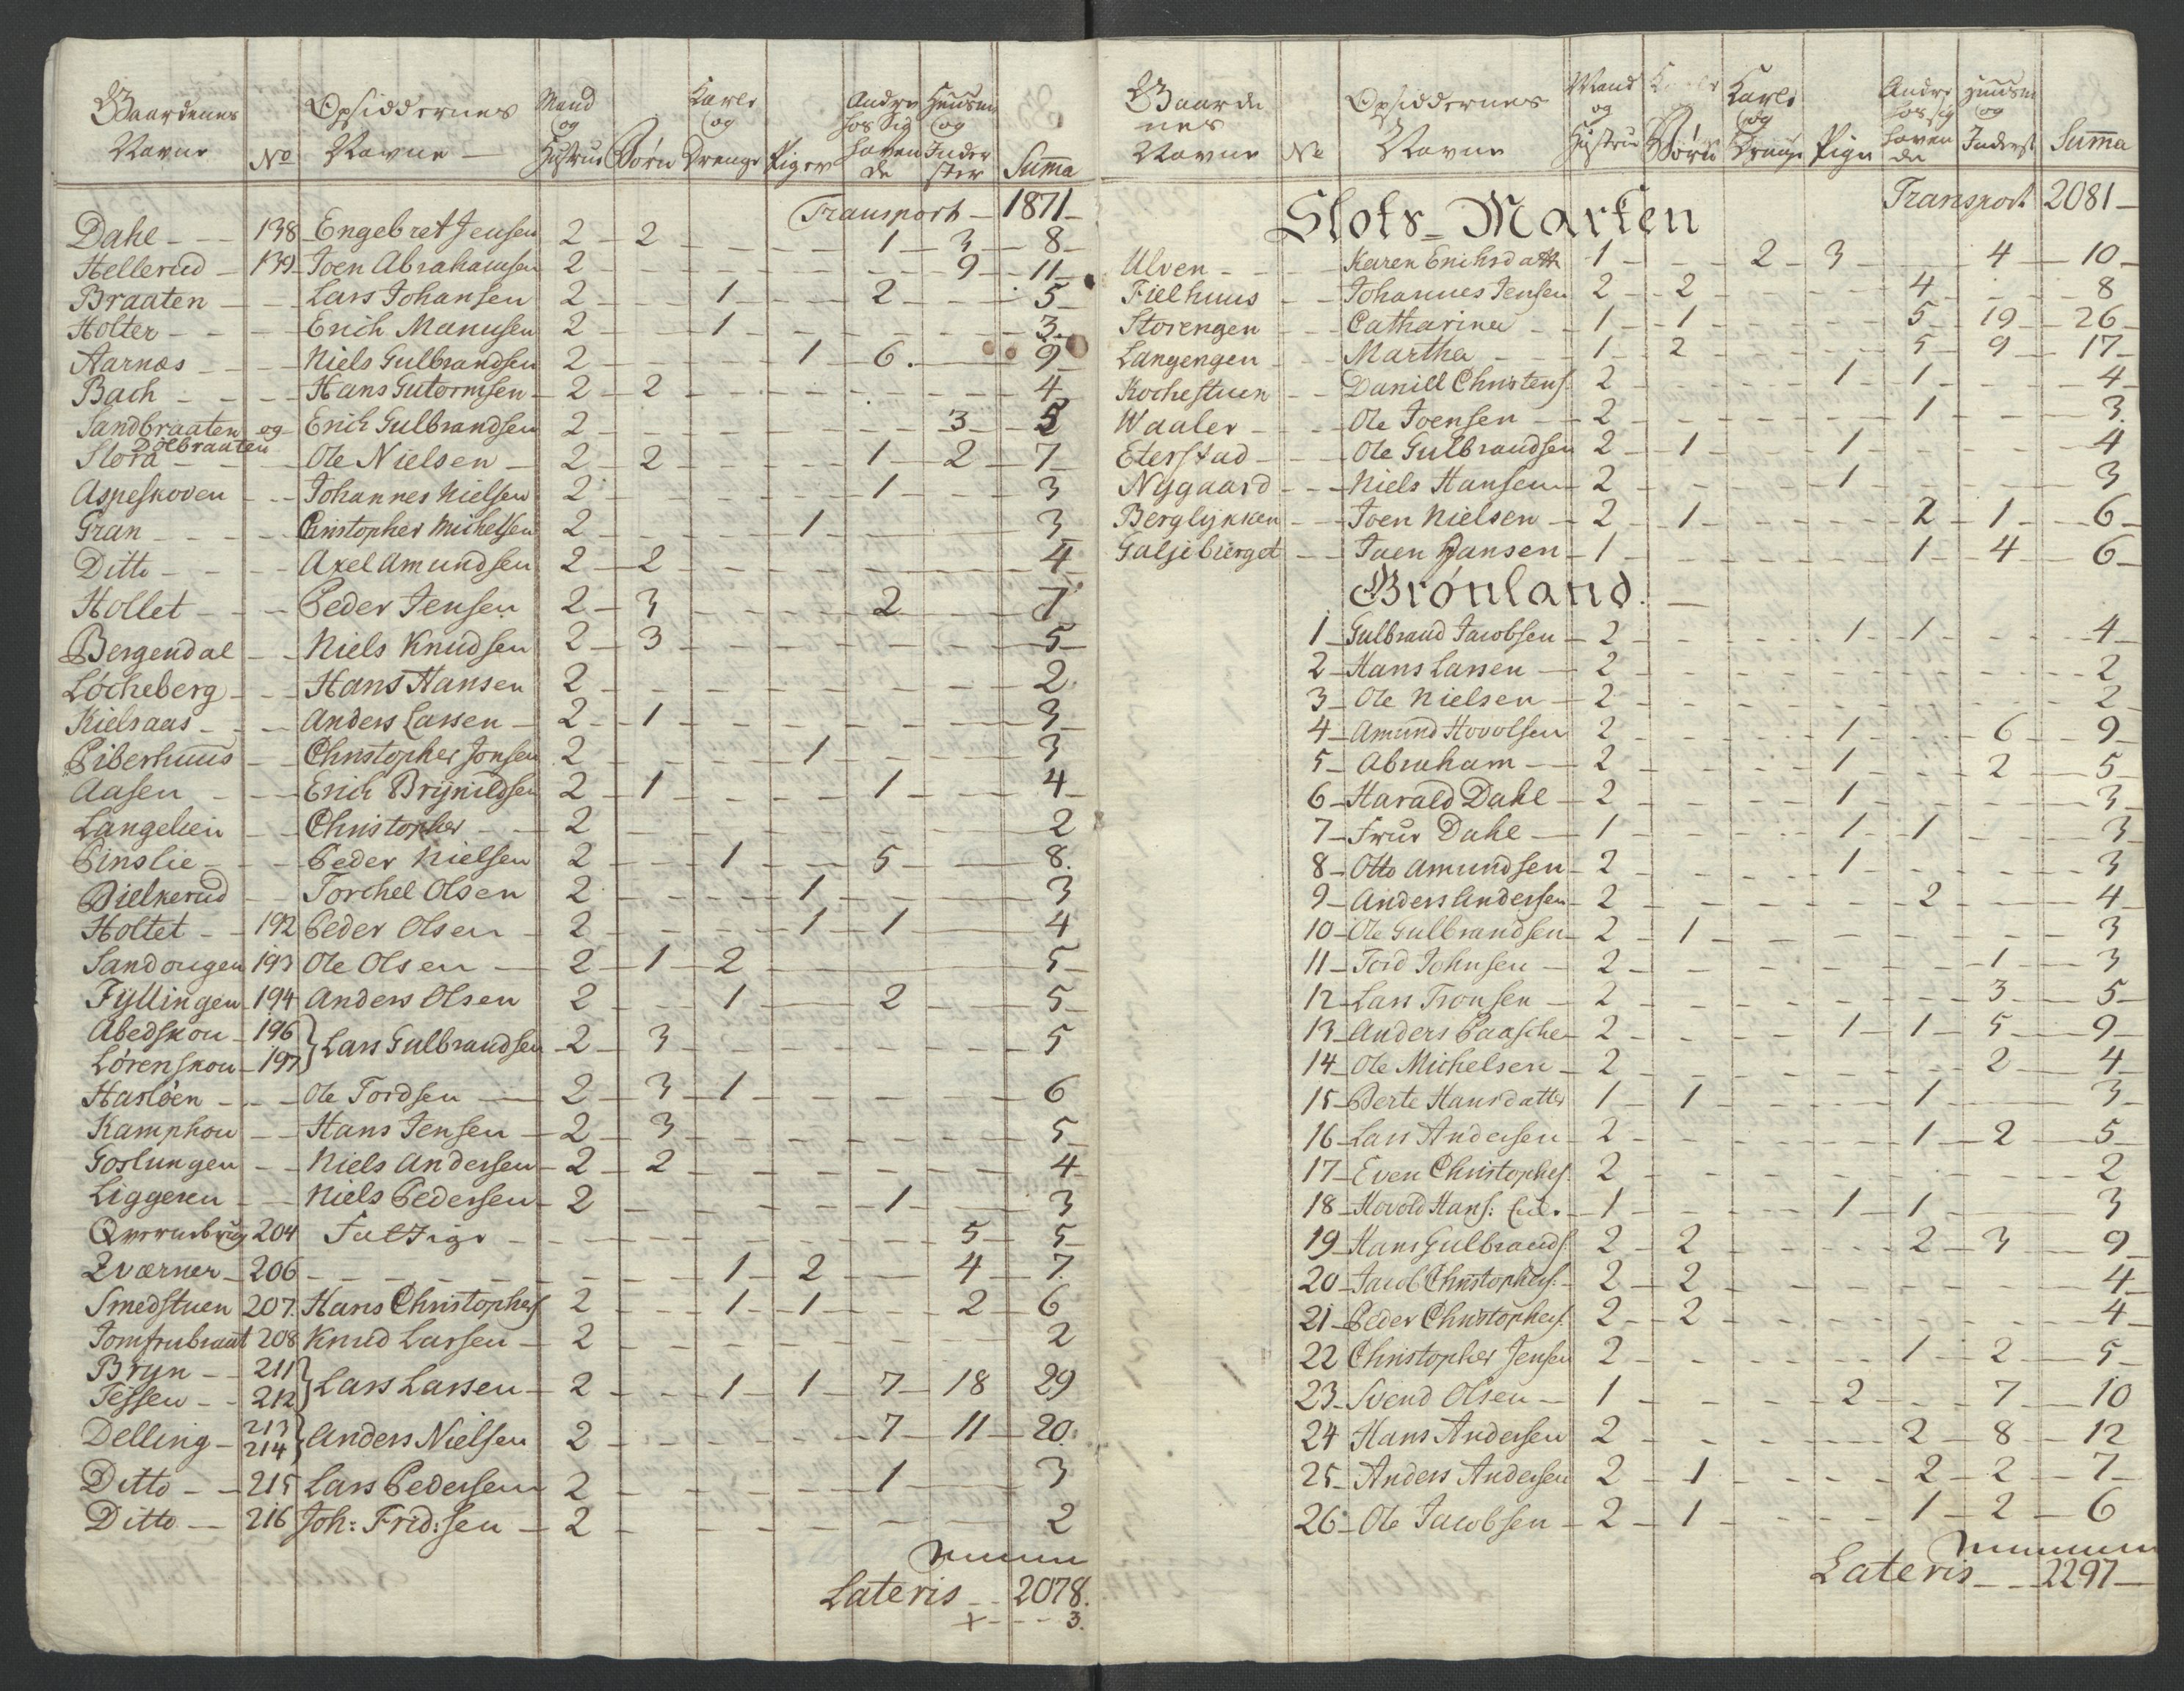 Gaardenes Navne No Opsiddernes Navne Mand og Hustrue Børn Karle og Drenge Piger Andre hos Sig havende Huusm og Inderster Suma
Transport 1871
Dahl 138 Engebret Jensen 2 2 1 3 8
Hellerud 139 Joen Abrahamsen 2 9 11
Braaten Lars Johansen 2 1 2 5
Holter Erich Manusen 2 1 3
Aarnæs Niels Gulbrandsen 2 1 6 9
Bach Hans Gutormsen 2 2 4
Sandbraaten og Erich Gulbrandsen 2 3 5
Dølbraaten
Slora Ole Nielsen 2 2 1 2 7
Aspeskoven Johannes Nielsen 2 1 3
Gran Christopher Michelsen 2 1 3
Ditto Axel Amundsen 2 2 4
Hollet Peder Jensen 2 3 2 7
Bergendal Niels Knudsen 2 3 5
Løcheberg Hans Hansen 2 2
Kielsaas Anders Larsen 2 1 3
Piberhuus Christopher Jonsen 2 1 3
Aasen Erich Brynildsen 2 1 1 4
Langelien Christopher 2 2
Linslie Peder Nielsen 2 1 5 8
Bielkerud Torchel Olsen 2 1 3
Holtet 192 Peder Olsen 2 1 1 4
Sandougen 193 Ole Olsen 2 1 2 5
Fyllingen 194 Anders Olsen 2 1 2 5
Abedskou 196
Lørenskou 197 } Lars Gulbrandsen 2 3 5
Hasløen Ole Tordsen 2 3 1 6
Kamphou Hans Jensen 2 3 5
Goslungen Niels Andersen 2 2 4
Liggeren Niels Pedersen 2 1 3
Qværnbrug 204 Fattige 5 5
Qværner 206 1 2 4 7
Smedstuen 207 Hans Christophers 2 1 1 2 6
Jomfrubraat 208 Knud Larsen 2 2
Bryn 211
Tessen 212 } Lars Larsen 2 1 1 7 18 29
Delling 213 214 } Anders Nielsen 2 7 11 20
Ditto 215 Lars Pedersen 2 1 3
Ditto 216 Joh: Frid:sen 2 2
Lateris 2078
+ 3
Gaardenes Navne No Opsiddernes Navne Mand og Hustrue Børn Karle og Drenge Piger Andre hos sig havende Huusm og Inderst Suma
Transport 2081
Slots-Marken
Ulven Karen Erichsdatt 1 2 3 4 10
Fielhuus Johannes Jensen 2 2 4 8
Storengen Catharina 1 1 5 19 26
Langengen Martha 1 2 5 9 17
Kochestuen Daniel Christens: 2 1 1 4
Waaler Ole Joensen 2 1 3
Eterstad Ole Gulbrandsen 2 1 1 4
Nygaard Niels Hansen 2 1 3
Berglykken Joen Nielsen 2 1 2 1 6
Galjebierget Joen Jansen 1 1 4 6
Grønland.
1 Gulbrand Jacobsen 2 1 1 4
2 Hans Larsen 2 2
3 Ole Nielsen 2 2
4 Amund Hovolsen 2 1 6 9
5 Abraham 2 1 2 5
6 Harald Dahl 2 1 3
7 Frue Dahl 1 1 1 3
8 Otto Amundsen 2 1 3
9 Anders Andersen 2 2 4
10 Ole Gulbrandsen 2 1 3
11 Tord Johnsen 2 1 3
12 Lars Tronsen 2 3 5
13 Anders Paasche 2 1 1 5 9
14 Ole Michelsen 2 2 4
15 Berte Hansdatter 1 1 1 3
16 Lars Andersen 2 1 2 5
17 Even Christophers: 2 2
18 Hovold Hans: 1 1 1 3
19 Hans Gulbrands: 2 2 2 3 9
20 Jacob Christophers: 2 2 4
21 Peder Christophers: 2 2 4
22 Christopher Jensen 2 1 2 5
23 Svend Olsen 1 2 7 10
24 Hans Andersen 2 2 8 12
25 Anders Andersen 2 1 2 2 7
26 Ole Jacobsen 2 1 1 2 6
Lateris 2297